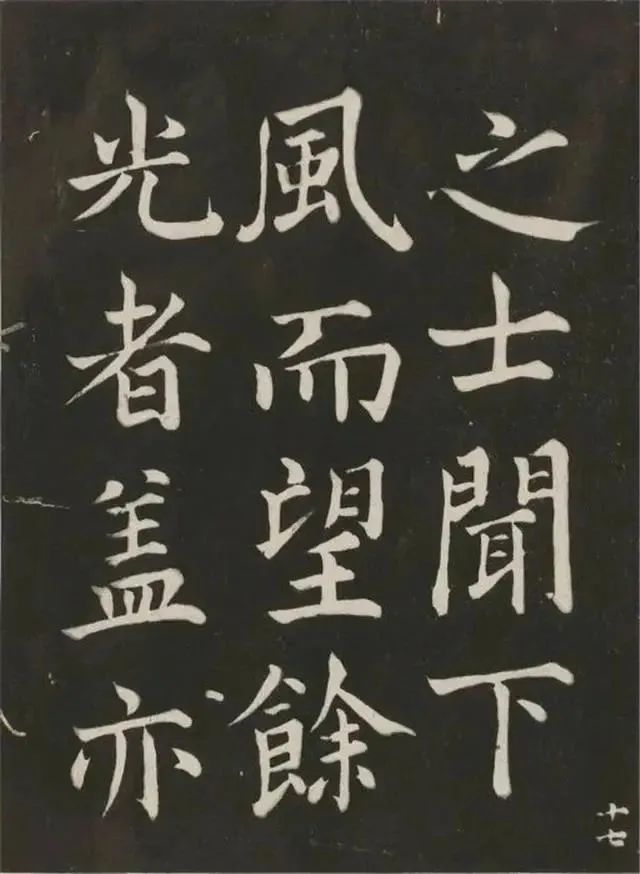 之士聞下
風而望餘
光者盖亦
十七